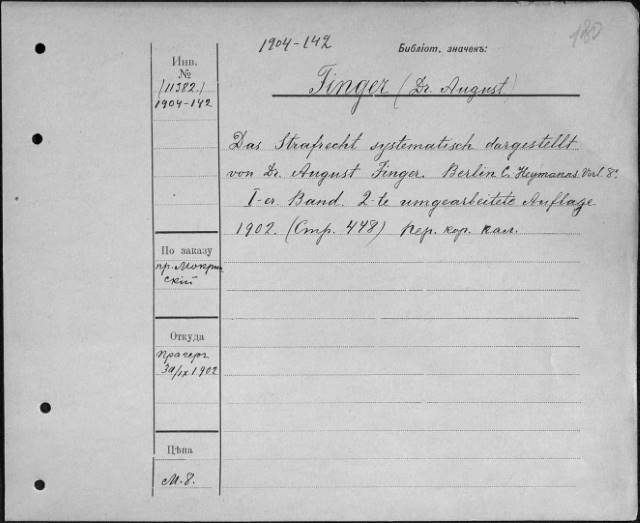 1904-142
Библіот. значекъ:
180
Инв.
№
(11382.)
1904-142
Finger (Dr. August)
Das Strafrecht systematisch dargestellt
von Dr. August Finger. Berlin C. Heymanns Verl 8°.
I-er Band. 2-te umgearbeitete Auflage
1902. (Стр. 448) пер. кор. кал.
По заказу
пр. Мокрин
скій
Откуда
Прагеръ
30/IX 1902
Цѣна
М. 8.